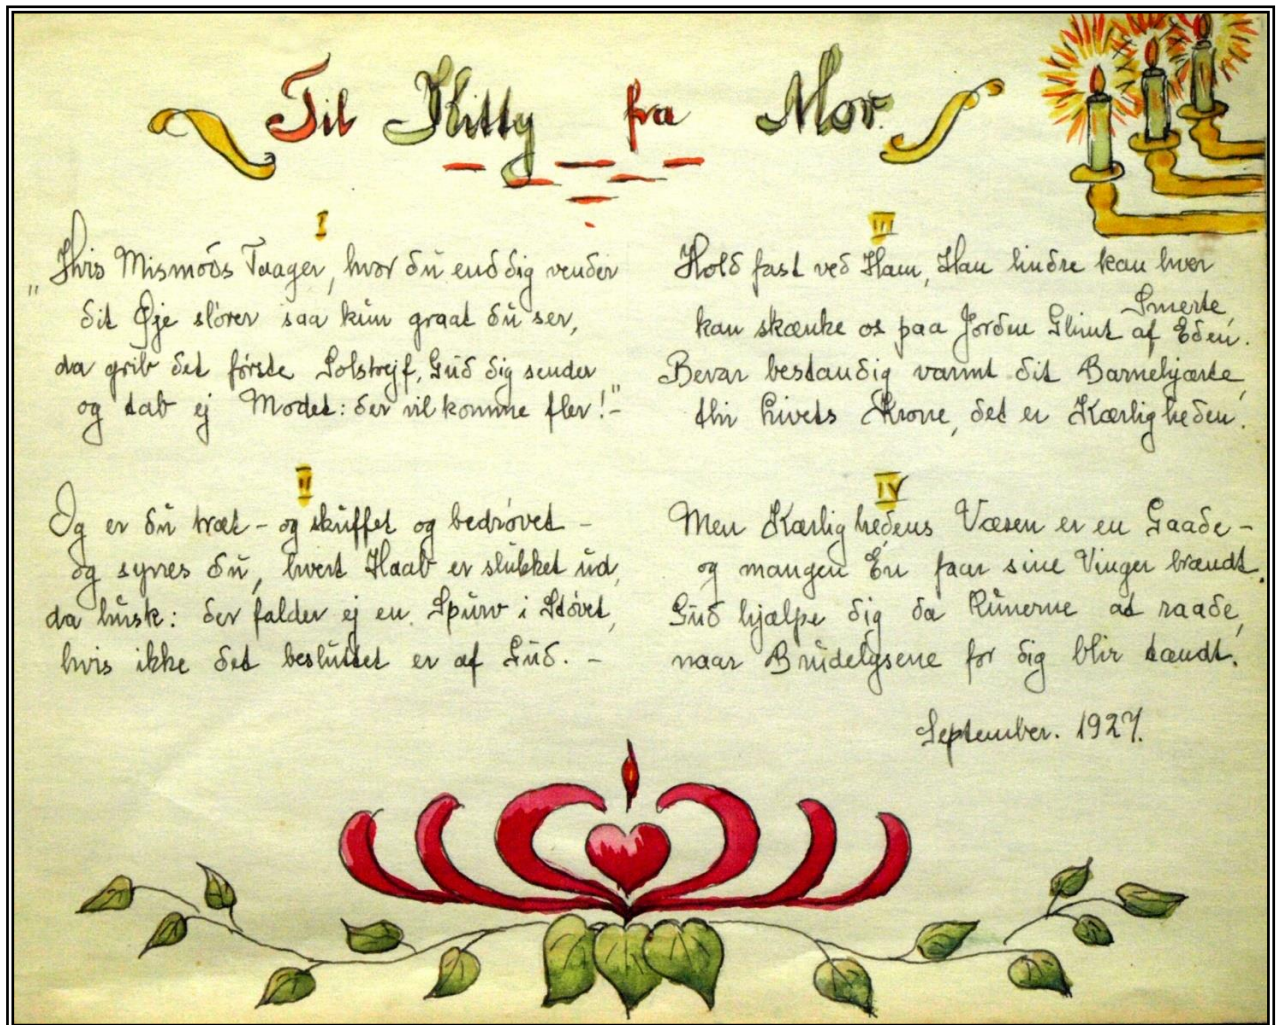 Til Kitty fra Mor.
I
"Hvis Mismods Taager, hvor du end dig vender
dit Øje slører saa kun graat du ser,
da grib det første Solstrejf, Gud dig sender
og tab ej Modet: der vil komme fler!"-
II
Og er du træt - og skuffet og bedrøvet -
og synes du, hvert Haab er slukket ud,
da husk: der falder ej en Spurv i Støvet,
hvis ikke det besluttet er af Gud. -
III
Hold fast ved Ham, Han lindre kan hver
Smerte,
kan skænke os paa Jorden Glimt af Eden.
Bevar bestandig varmt dit Barnehjærte,
thi Livets Krone, det er Kærligheden.
IV
Men Kærlighedens Væsen er en Gaade -
og mangen En faar sine Vinger brændt.
Gud hjælpe dig da Runerne at raade,
naar Brudelysene for dig blir tændt.
September. 1927.